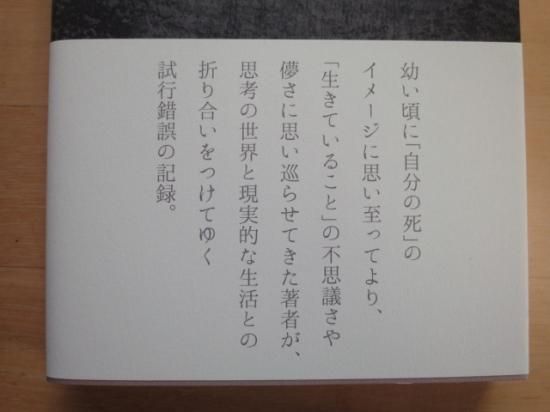 幼い頃に「自分の死」の
イメージに思い至ってより、
「生きていること」の不思議さや
儚さに思い巡らせてきた著者が、
思考の世界と現実的な生活との
折り合いをつけてゆく
試行錯誤の記録。